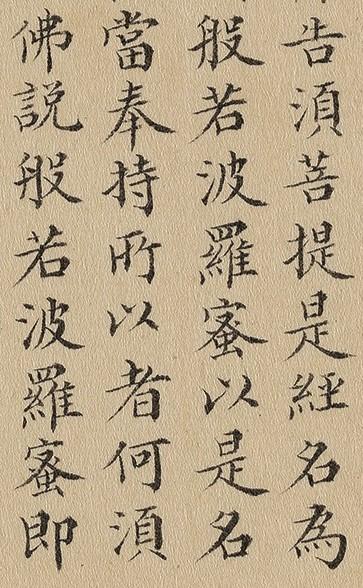 告須菩提是經名為
般若波羅蜜以是名
當奉持所以者何須
佛説般若波羅蜜即